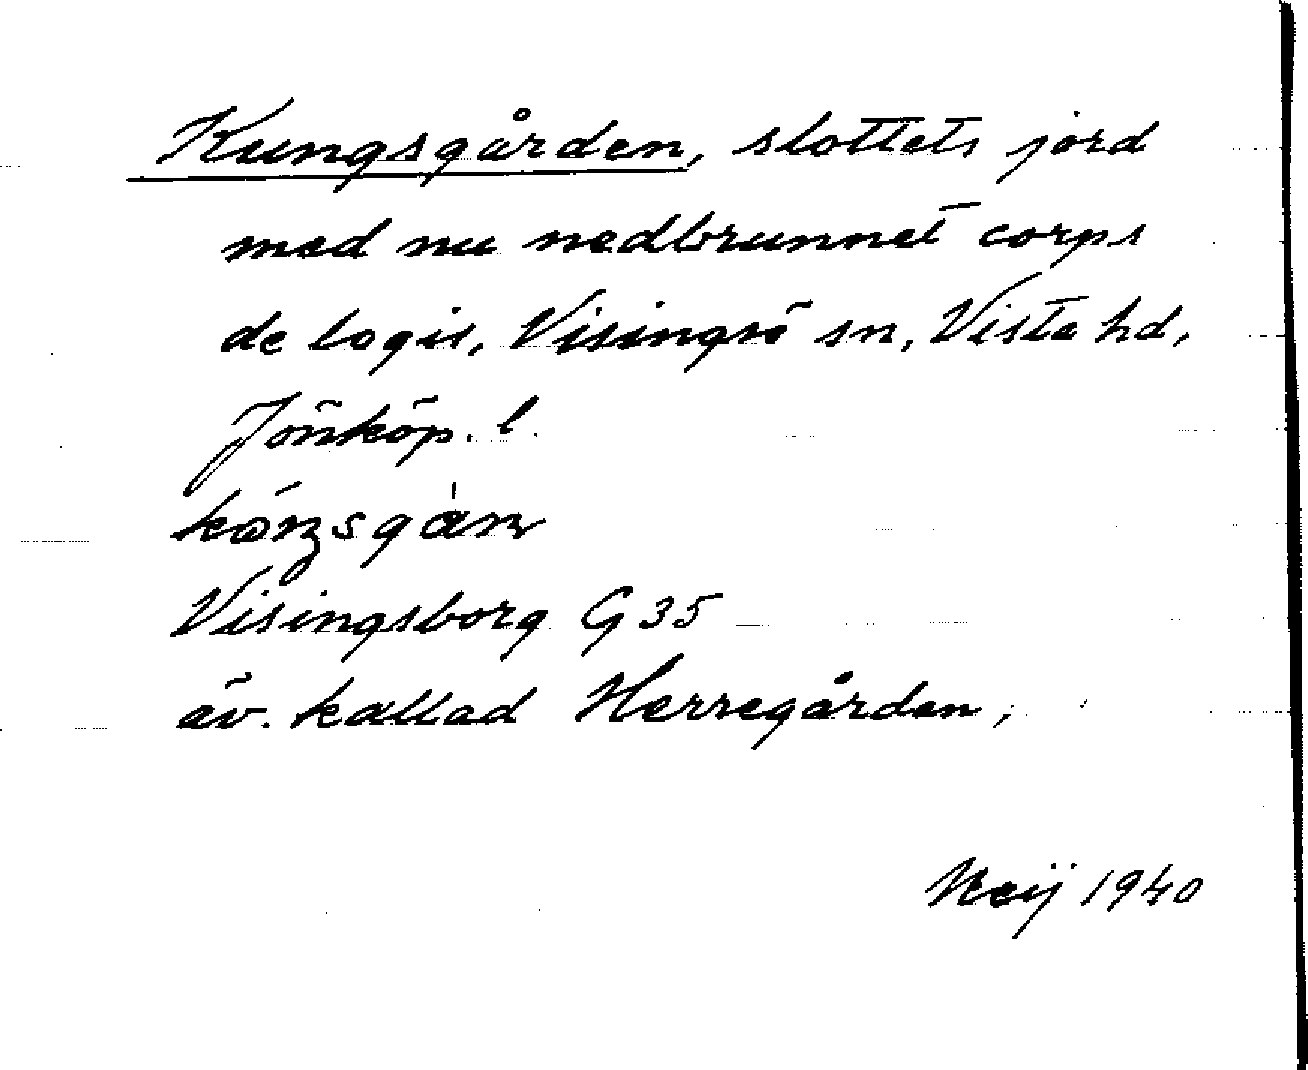 Kungsgården, slottets jord
med nu nedbrunnet corps
de logis, Visingsö sn, Vista hd,
Jönköp. l.
Visingsborg G 35
äv. kallad Herregården,
1940